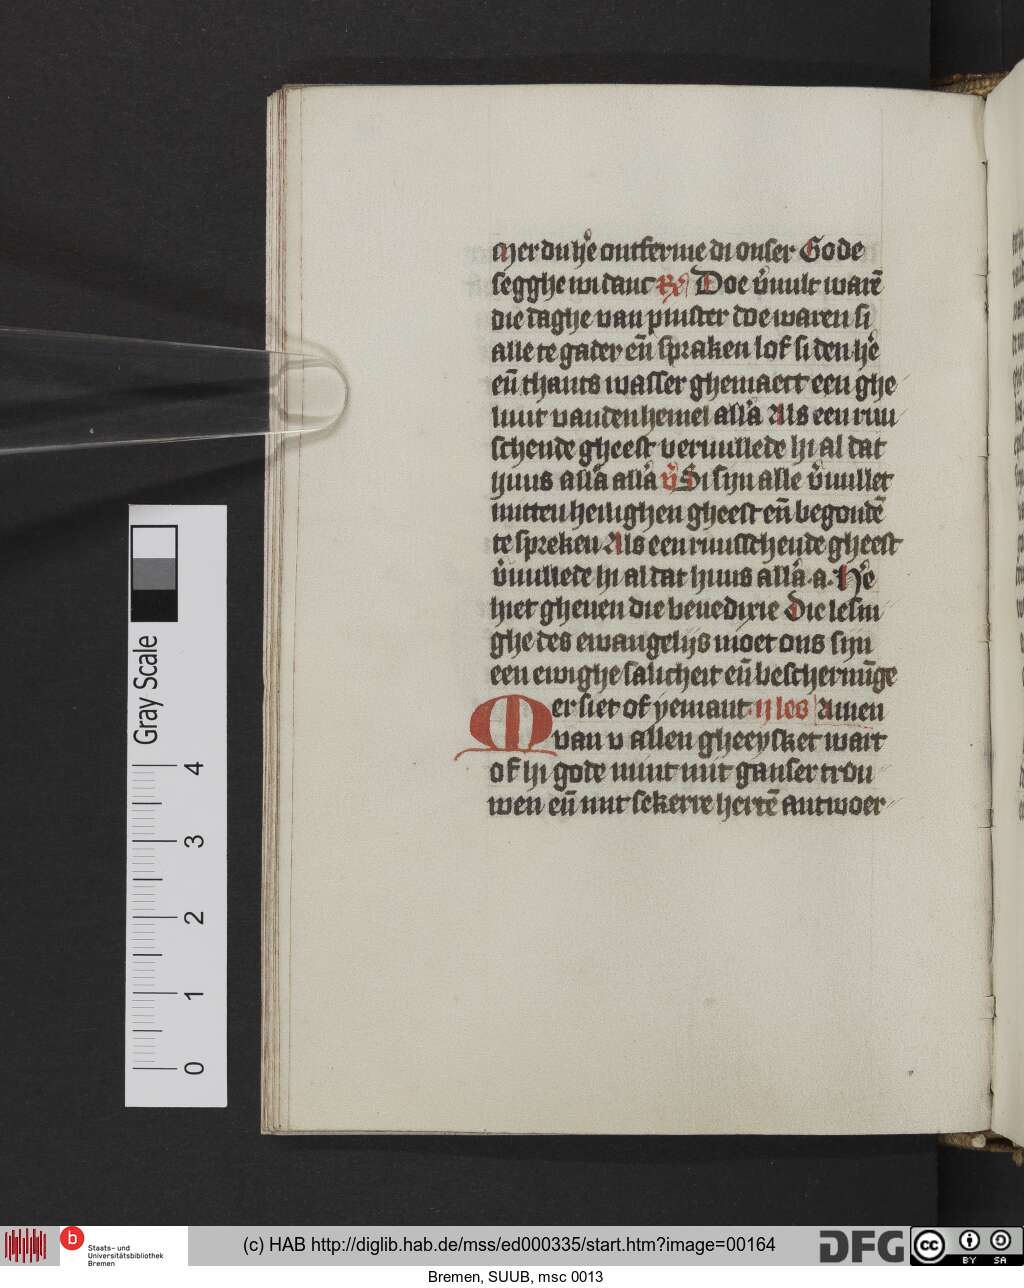 Mer du he ontferme di onser Gode
segghe wi danc R Doe vvult warē
die daghe van pinster doe waren si
alle te gader eñ spraken lof si den he
eñ thants wasser ghemaect een ghe
luut vanden hemel alla Als een ruu
schende gheest veruullede hi al dat
huus alla alla v Si sijn alle vvullet
mitten heilighen gheest eñ begondē
te spreken Als een ruusschende gheest
vvullede hi al dat huus alla · a · He
hiet gheuen die benedixie Die lesin
ghe des ewangelijs moet ons sijn
een ewighe salicheit eñ beschermīge
Mer siet of yemant ij les Amen
van v allen gheeysket wart
of hi gode mint mit ganser trou
wen eñ mit sekerre hertē antwoer
Gray Scale
4
3
2
1
0
b
Staats- und
Universitätsbibliothek
Bremen
(c) HAB http://diglib.hab.de/mss/ed000335/start.htm?image=00164
DFG
cc
BY SA
Bremen, SUUB, msc 0013